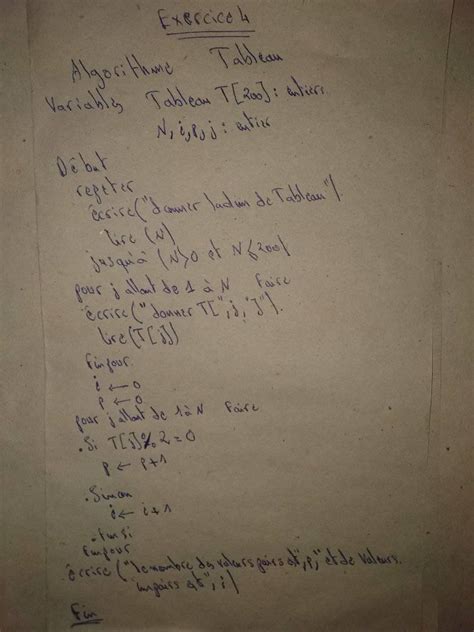 Exercice 4
Algorithme Tableau
Variables Tableau T[200]: entiers
N, i, p, j : entier
Début
repeter
écrire("donner la dim de Tableau")
lire (N)
jusqu'à (N>0 et N≤200)
pour j allant de 1 à N Faire
écrire("donner T[",j,"]").
lire(T[j])
Finpour
i ← 0
p ← 0
pour j allant de 1 à N Faire
.Si T[j]%2=0
p ← p+1
.Sinon
i ← i+1
.Finsi
Finpour
écrire("le nombre des valeurs pairs est",p,"et de valeurs.
impairs est", i)
Fin